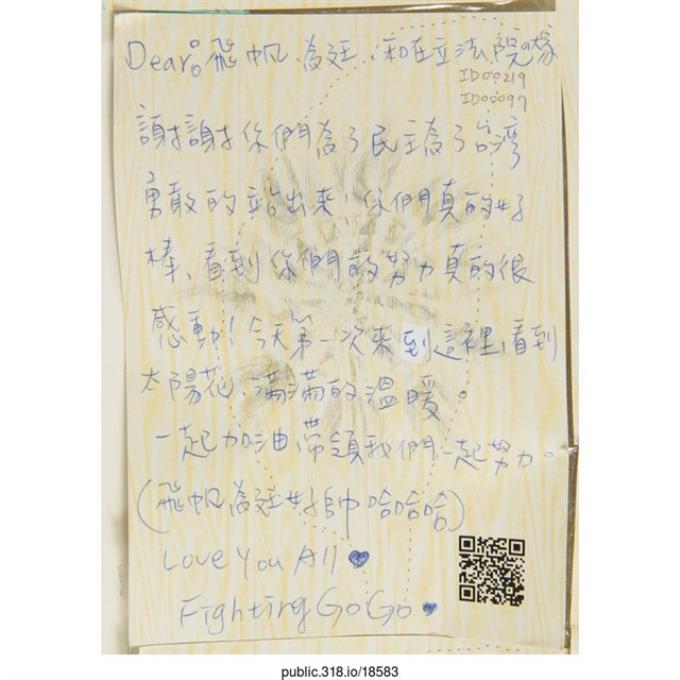 Dear: 飛帆、為廷、和在立法院的大家
ID00219
ID00097
謝謝你們為了民主為了台灣
勇敢的站出來,你們真的好
棒、看到你們的努力真的很
感動!今天第一次來到這裡,看到
太陽花、滿滿的溫暖。
一起加油帶領我們一起努力。
(飛帆為廷好帥哈哈哈)
Love You All ♥
Fighting GoGo ♥
public.318.io/18583